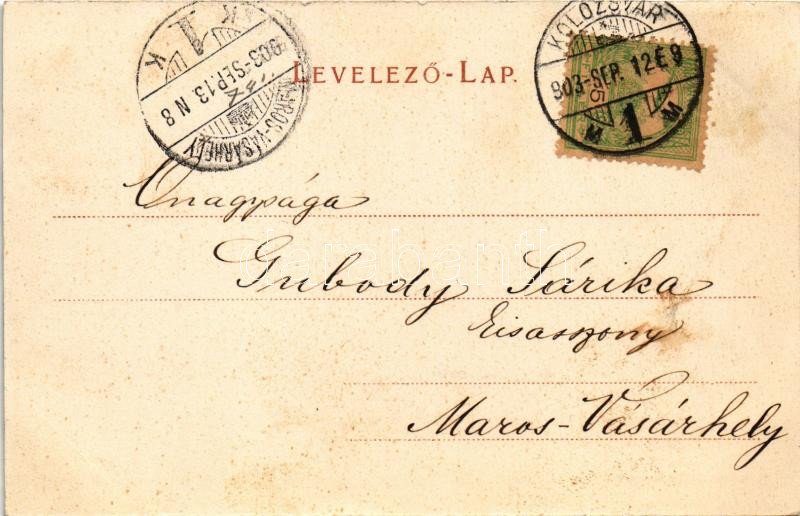 LEVELEZŐ-LAP.
KOLOZSVÁR
903-SEP. 12 E 9
M 1 M
5
MAROS-VÁSÁRHELY
903-SEP. 13 N 8
K 1 K
Őnagysága
Gubody Sárika
kisasszony
Maros-Vásárhely
darabanth